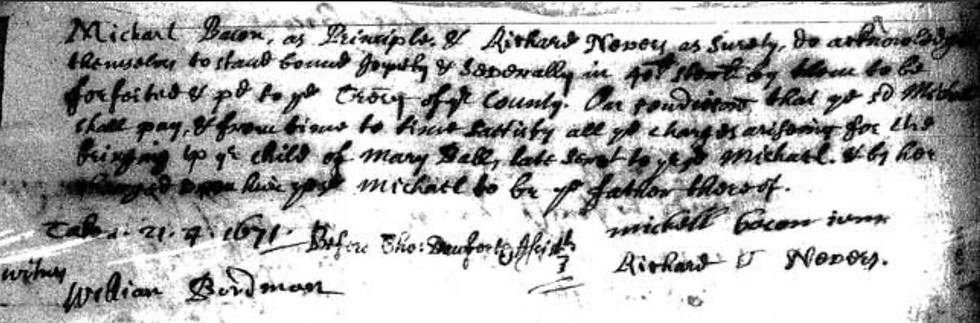 Michael Bacon, as Principle, & Richard Nevers as Surety, do acknowledge
themselves to stand bound Joyntly & Severally in 40ll by them to be
forfeited & pd to ye of ye County. On condicion that ye sd Michael
shall pay, & from time to time Sattisfy all ye charges ariseing for the
bringing up ye child of Mary Ball, late Servt to ye sd Michael. & by her
charged upon him ye sd Michael to be ye father thereof.
Taken. 21. 4. 1671. Before Tho: Danforth Assist
michell bacon iunr
Richard Nevers.
witnes
William Bordman